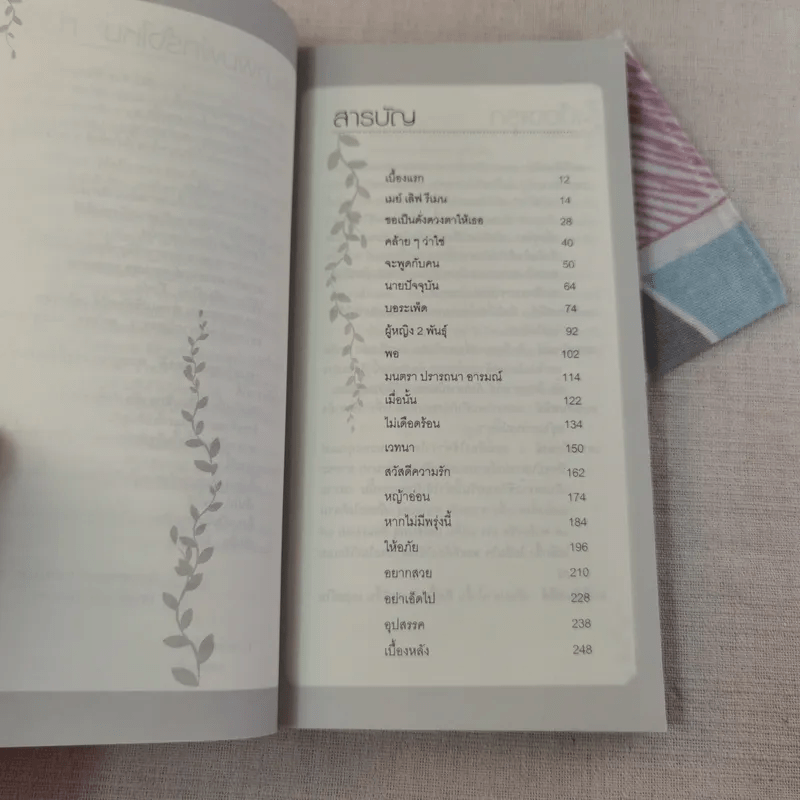 สารบัญ
เบื้องแรก 12
เมย์ เสิฟ รีเมน 14
ขอเป็นดั่งดวงตาให้เธอ 28
คล้าย ๆ ว่าใช่ 40
จะพูดกับคน 50
นายปัจจุบัน 64
บอระเพ็ด 74
ผู้หญิง 2 พันธุ์ 92
พอ 102
มนตรา ปรารถนา อารมณ์ 114
เมื่อนั้น 122
ไม่เดือดร้อน 134
เวทนา 150
สวัสดีความรัก 162
หญ้าอ่อน 174
หากไม่มีพรุ่งนี้ 184
ให้อภัย 196
อยากสวย 210
อย่าเอ็ดไป 228
อุปสรรค 238
เบื้องหลัง 248